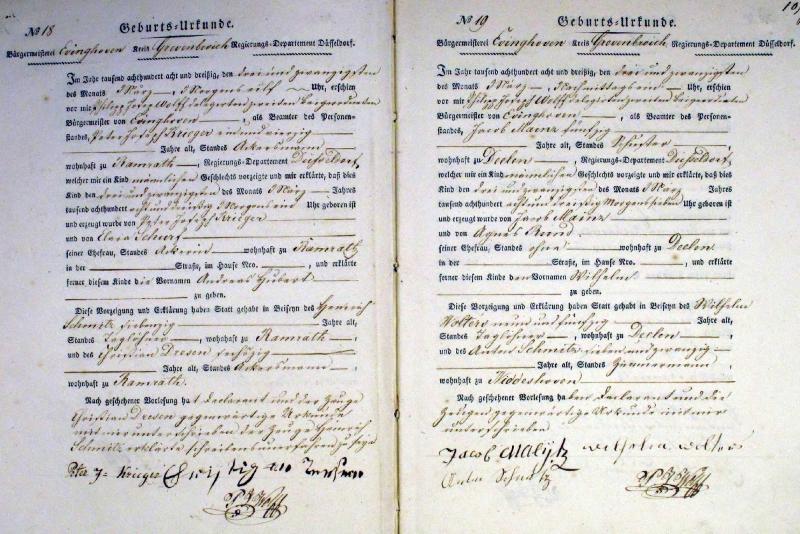 No 18 Geburts-Urkunde.
Bürgermeisterei Evinghoven Kreis Grevenbroich Regierungs-Departement Düsseldorf.
Im Jahr tausend achthundert acht und dreißig, den drei und zwanzigsten
des Monats März, Morgens elf Uhr, erschien
vor mir Philipp Joseph Wolff delegirten zweiten Beigeordneten
Bürgermeister von Evinghoven, als Beamter des Personen-
standes, Peter Joseph Krieger ein und vierzig
Jahre alt, Standes Ackersmann,
wohnhaft zu Ramrath, Regierungs-Departement Düsseldorf,
welcher mir ein Kind männlichen Geschlechts vorzeigte und mir erklärte, daß dies
Kind den drei und zwanzigsten des Monats März Jahres
tausend achthundert acht und dreißig Morgens ein Uhr geboren ist
und erzeugt wurde von Peter Joseph Krieger
und von Clara Schurf
seiner Ehefrau, Standes Ackerin wohnhaft zu Ramrath
in der Straße, im Hause Nro. , und erklärte
ferner diesem Kinde die Vornamen Andreas Hubert
zu geben.
Diese Vorzeigung und Erklärung haben Statt gehabt in Beiseyn des Heinrich
Schmitz siebenzig Jahre alt,
Standes Taglöhner, wohnhaft zu Ramrath,
und des Christian Dresen sechszig
Jahre alt, Standes Ackersmann,
wohnhaft zu Ramrath.
Nach geschehener Vorlesung hat Declarant und der Zeuge
Christian Dresen gegenwärtige Urkunde
mit mir unterschrieben der Zeuge Heinrich
Schmitz erklärte schreibensunerfahren zu seyn
Peter J. Krieger
PJ Wolff
No 19 Geburts-Urkunde.
Bürgermeisterei Evinghoven Kreis Grevenbroich Regierungs-Departement Düsseldorf.
Im Jahr tausend achthundert acht und dreißig, den drei und zwanzigsten
des Monats März, Nachmittags ein Uhr, erschien
vor mir Philipp Joseph Wolff delegirten zweiten Beigeordneten
Bürgermeister von Evinghoven, als Beamter des Personen-
standes, Jacob Mainz fünfzig
Jahre alt, Standes Schuster,
wohnhaft zu Deelen, Regierungs-Departement Düsseldorf,
welcher mir ein Kind männlichen Geschlechts vorzeigte und mir erklärte, daß dies
Kind den drei und zwanzigsten des Monats März Jahres
tausend achthundert acht und dreißig Morgens sieben Uhr geboren ist
und erzeugt wurde von Jacob Mainz
und von Agnes
seiner Ehefrau, Standes ohne wohnhaft zu Deelen
in der Straße, im Hause Nro. , und erklärte
ferner diesem Kinde den Vornamen Wilhelm
zu geben.
Diese Vorzeigung und Erklärung haben Statt gehabt in Beiseyn des Wilhelm
Wolters neun und fünfzig Jahre alt,
Standes Taglöhner, wohnhaft zu Deelen,
und des Anton Schmitz sieben und zwanzig
Jahre alt, Standes Zimmermann,
wohnhaft zu
Nach geschehener Vorlesung haben Declarant und die
Zeugen gegenwärtige Urkunde mit mir
unterschrieben
Jacob Wilhelm Wolters
Anton Schmitz PJ Wolff